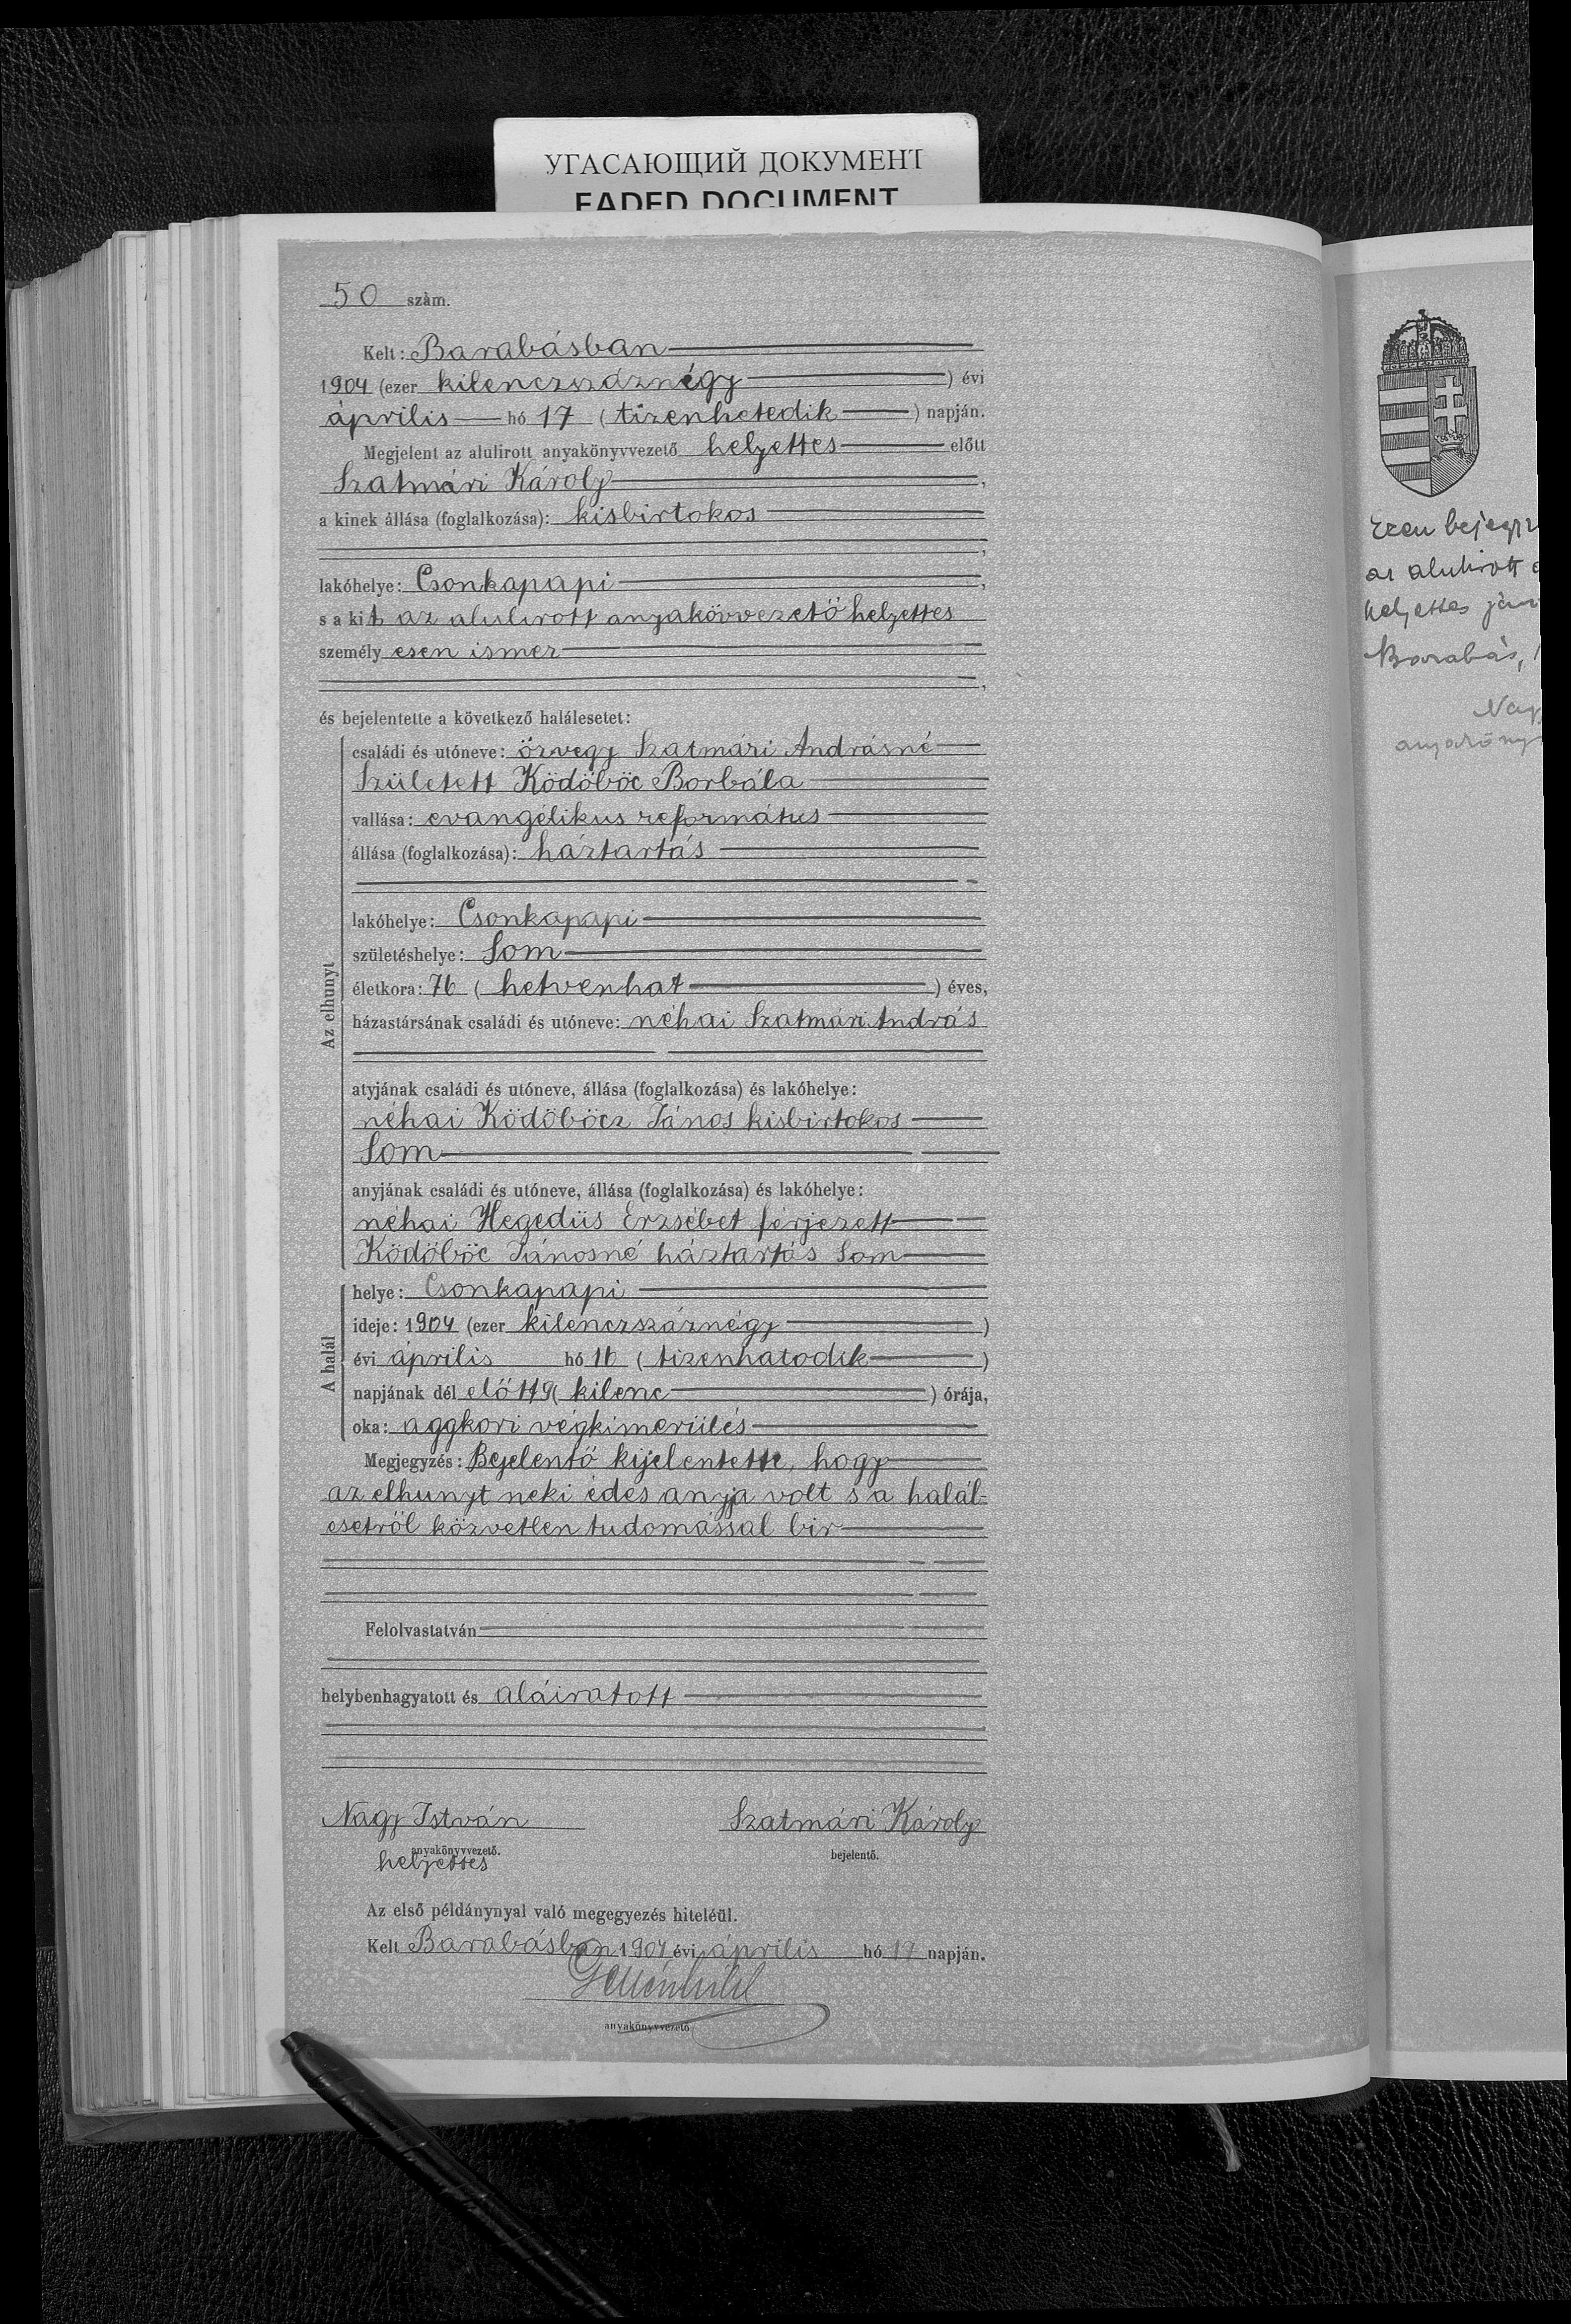 УГАСАЮЩИЙ ДОКУМЕНТ
FADED DOCUMENT
50 szám.
Kelt: Barabásban
1904 (ezer kilenczszáznégy ) évi
április hó 17 (tizenhetedik ) napján.
Megjelent az alulirott anyakönyvvezető helyettes előtt
Szatmári Károly ,
a kinek állása (foglalkozása): kisbirtokos
,
lakóhelye: Csonkapapi ,
s a kit az alulirott anyakövvezető helyettes
személyesen ismer
,
és bejelentette a következő halálesetet:
Az elhunyt
családi és utóneve: özvegy Szatmári Andrásné
Született Ködöböc Borbála
vallása: evangélikus református
állása (foglalkozása): háztartás
lakóhelye: Csonkapapi
születéshelye: Som
életkora: 76 (hetvenhat ) éves,
házastársának családi és utóneve: néhai Szatmári András
atyjának családi és utóneve, állása (foglalkozása) és lakóhelye:
néhai Ködöböcz János kisbirtokos
Som
anyjának családi és utóneve, állása (foglalkozása) és lakóhelye:
néhai Hegedüs Erzsébet férjezett
Ködöböc Jánosné háztartás Som
A halál
helye: Csonkapapi
ideje: 1904 (ezer kilenczszáznégy )
évi április hó 16 (tizenhatodik )
napjának dél előtt 9 (kilenc ) órája,
oka: aggkori végkimerülés
Megjegyzés: Bejelentő kijelentette, hogy
az elhunyt neki édes anyja volt s a halál-
esetről közvetlen tudomással bir
Felolvastatván
helybenhagyatott és aláiratott
Nagy István Szatmári Károly
anyakönyvvezető. bejelentő.
helyettes
Az első példánynyal való megegyezés hiteléül.
Kelt Barabásban 1904 évi április hó 17 napján.
anyakönyvvezető
Ezen bejegyz
az alulirott
helyettes
Barabás,
Nagy
anyakönyv